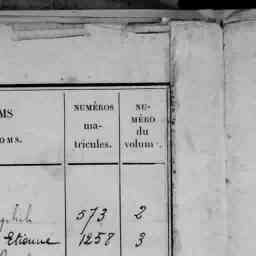 MS NUMÉROS NU-
MÉRO
ma- du
OMS. tricules. volume.
573 2
Etienne 1258 3